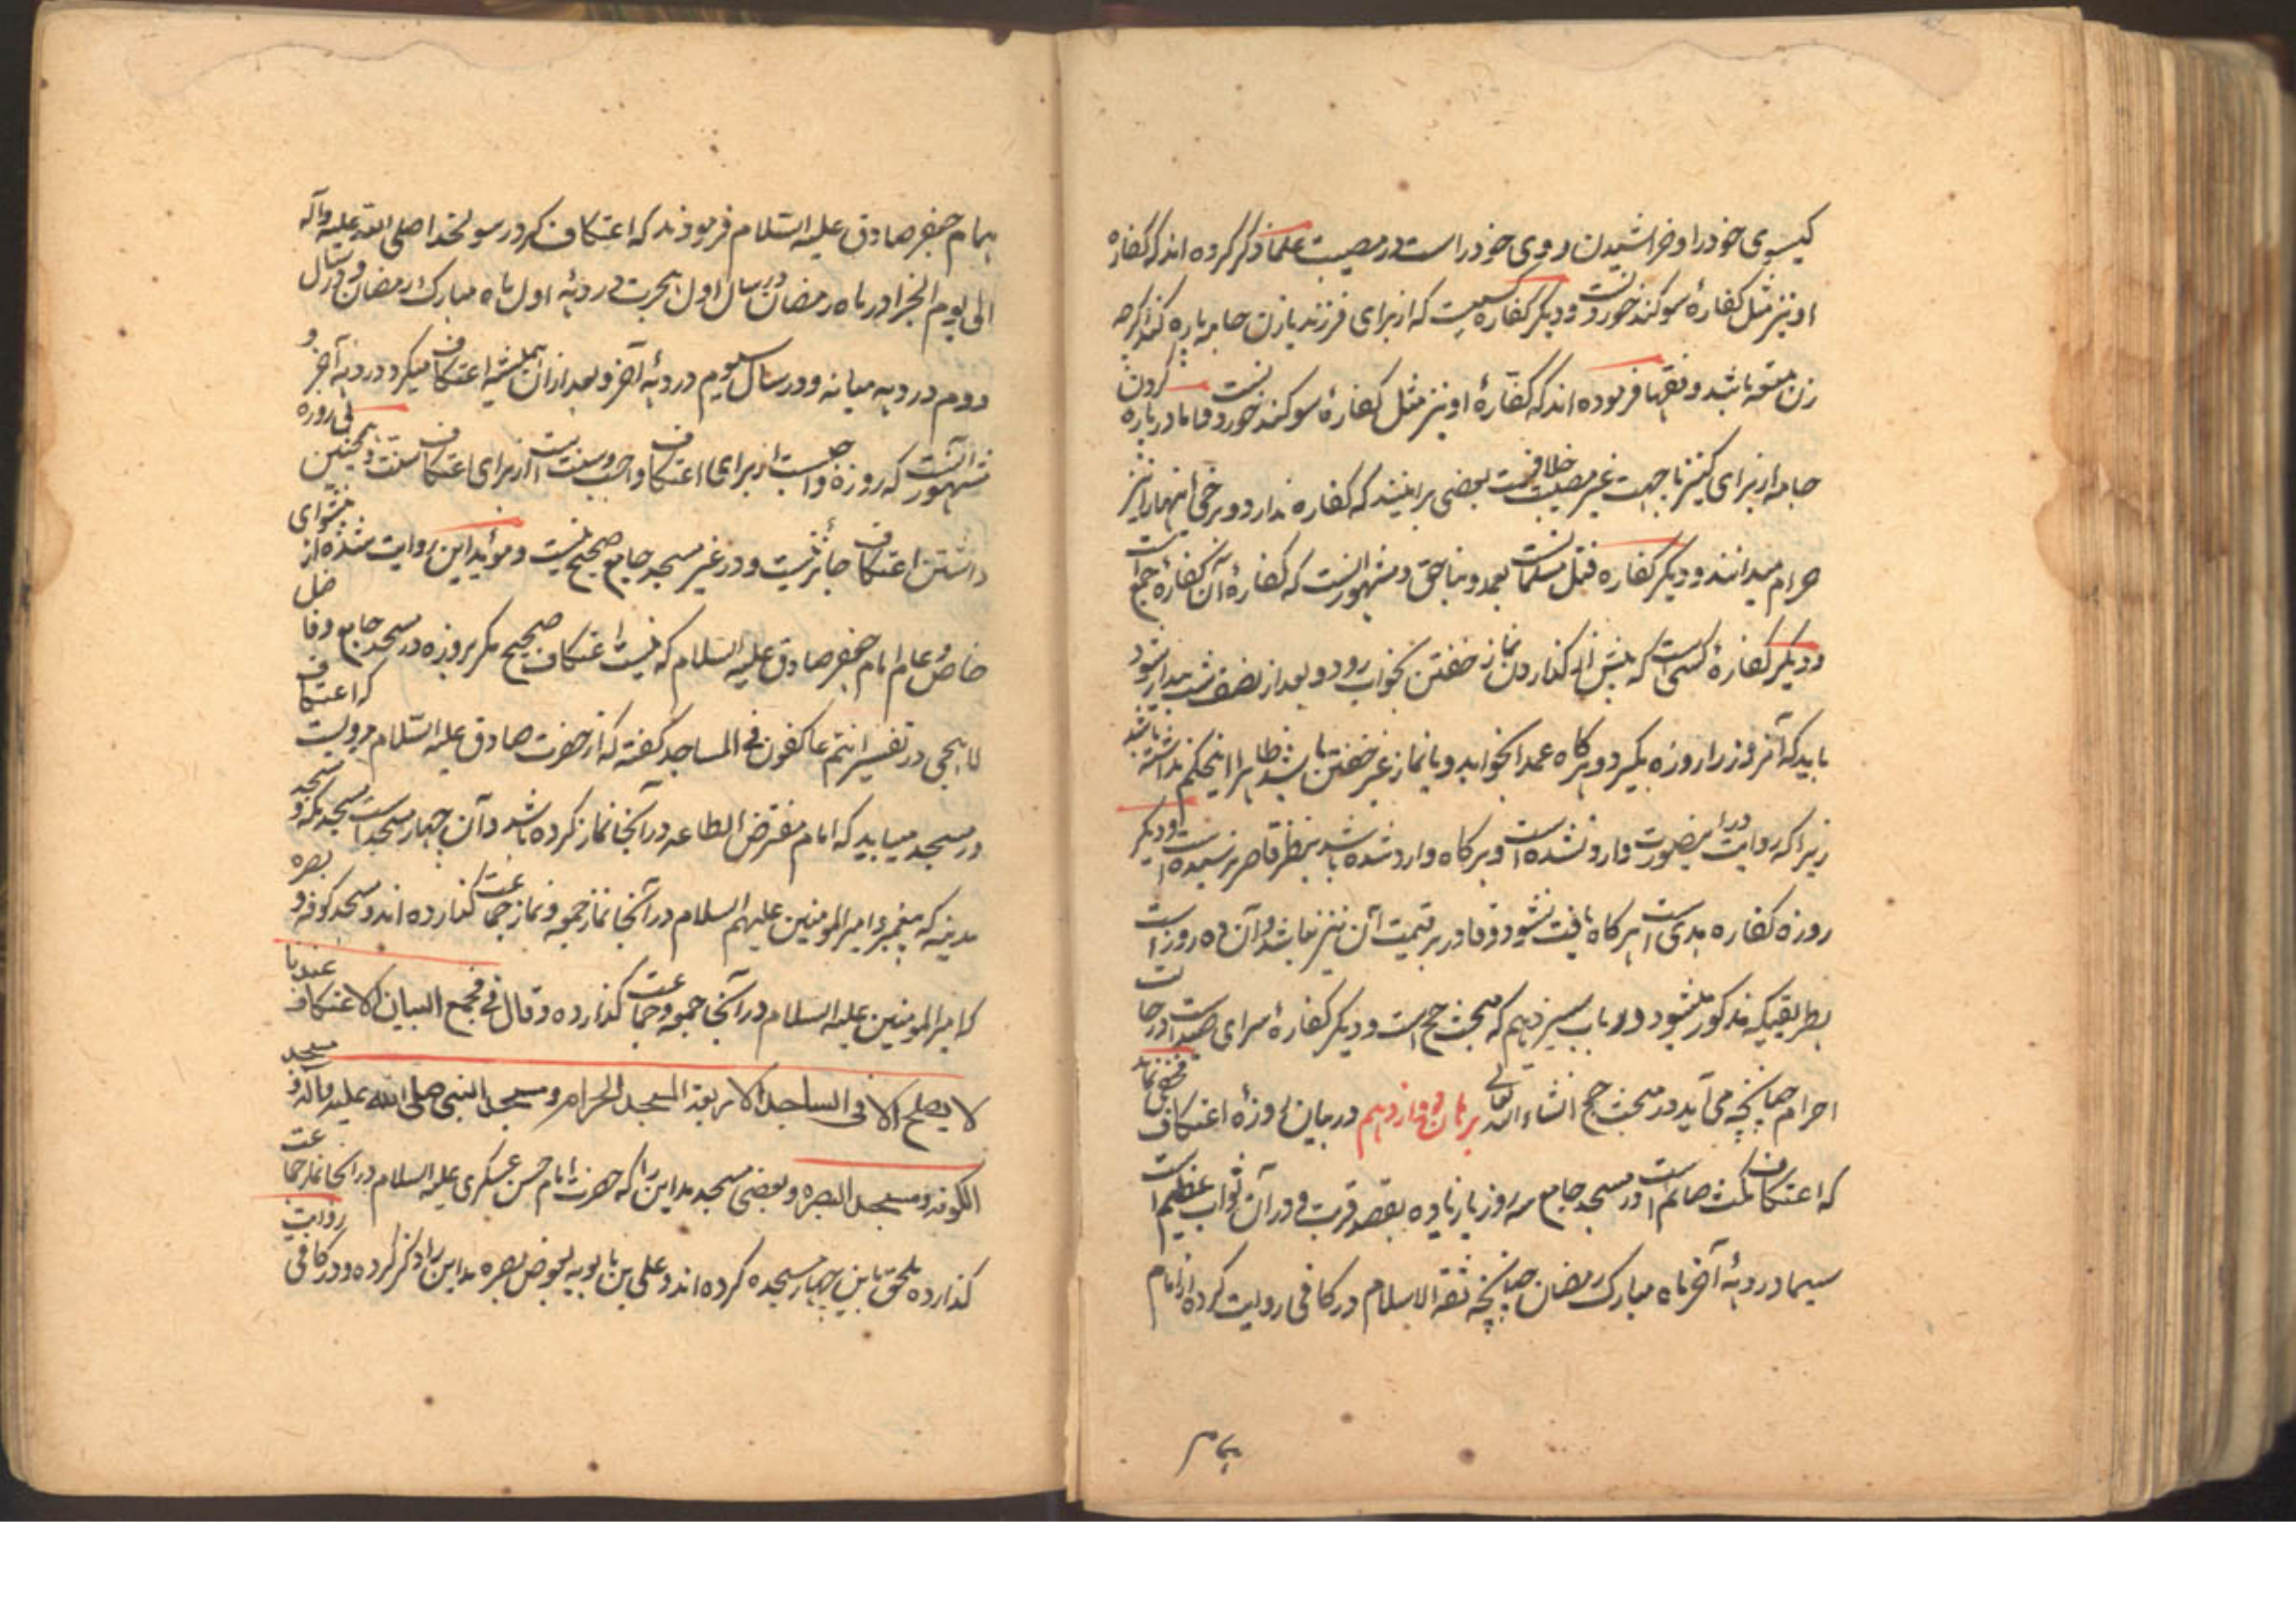 گیسوی خود را و خراشیدن روی خود را است در مصیبت علما ذکر کرده اند که کفاره
او نیز مثل کفارۀ سوکند خوردنست و دیکر کفاره کسیست که از برای فرزند یا زن جامه پاره کند اگرچه
زن متعه باشد و فقها فرموده اند که کفارۀ او نیز مثل کفارۀ سوکند خوردنست فاما در پاره کردن
جامه از برای کنیز یا جهت غیر مصیبت خلافست بعضی برانیند که کفاره ندارد و برخی اینها را نیز
حرام میدانند و دیکر کفاره قتل مسلمانست بعمد و بناحق و مشهور آنست که کفارۀ آن کفارۀ جمع است
و دیکر کفارۀ کسی است که پیش از کذاردن نماز خفتن بخواب رود و بعد از نصف شب بیدار شود
باید که آنروز را روزه بگیرد و هرکاه عمدا بخوابد و یا نماز غیر خفتن باشد ظاهرا اینحکم نداشته باشد
زیرا که روایت در اینصورت وارد نشده است و هرکاه وارد شده باشد بنظر قاصر نرسیده است و دیکر
روزه کفاره هدی است هرکاه یافت نشود و قادر بر قیمت آن نیز نباشد و آن ده روز است
بطریقیکه مذکور میشود در باب سیزدهم که مبحث حج است و دیکر کفارۀ سرای صید است در حالت
احرام چنانچه می آید در مبحث حج انشاء الله تعالی برهان دوازدهم در بیان روزۀ اعتکاف مخفی نماند
که اعتکاف مکث صائم است در مسجد جامع سه روز یا زیاده بقصد قربت و در آن ثواب عظیم است
سیما در دهۀ آخر ماه مبارک رمضان چنانچه ثقة الاسلام در کافی روایت کرده از امام
همام
همام جعفر صادق علیه السلام فرمودند که اعتکاف کرد رسولخدا صلی الله علیه و آله
الی یوم الجزا در ماه رمضان در سال اول هجرت در دهۀ اول ماه مبارک رمضان و در سال
دوم در دهه میانه و در سال سیوم در دهۀ آخر و بعد از ان همیشه اعتکاف میکرد در دهۀ آخر و
مشهور آنست که روزه واجبست از برای اعتکاف واجب و سنت است از برای اعتکاف سنت و همچنین بی روزه
داشتن اعتکاف جائز نیست و در غیر مسجد جامع صحیح نیست و مؤید این روایت شده از پیشوای
خاص و عام امام جعفر صادق علیه السلام که نیست اعتکاف صحیح مکر بروزه در مسجد جامع و فاضل
لاهجی در تفسیر انتم عاکفون فی المساجد گفته که از حضرت صادق علیه السلام مرویست که اعتکاف
در مسجد میباید که امام مفترض الطاعه در آنجا نماز کرده باشد و آن چهار مسجد است مسجد مکه و مسجد
مدینه که پیغمبر و امیر المومنین علیهم السلام در آنجا نماز جمعه و نماز جماعت کذارده اند و مسجد کوفه و بصره
که امیر المومنین علیه السلام در آنجا جمعه و جماعت کذارده و قال فی مجمع البیان الاعتکاف عندنا
لا یصلح الا فی المساجد الاربعة المسجد الحرام و مسجد النبی صلی الله علیه و آله و مسجد
الکوفه و مسجد البصره و بعضی مسجد مداین را که حضرت امام حسن عسکری علیه السلام در آنجا نماز جماعت
کذارده ملحق باین چهار مسجده کرده اند و علی بن بابویه بعوض بصره مداین را ذکر کرده و در کافی روایت